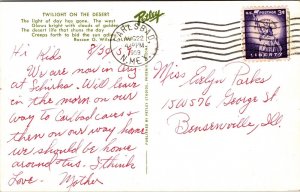 TWILIGHT ON THE DESERT
The light of day has gone. The west
Glows bright with clouds of golden
The desert life that shuns the day
Creeps forth to bid the sun
Roscoe G. Willson
Petley
CARLSBAD
AUG 22
PM
1959
N. MEX.
U.S. POSTAGE
3¢
LIBERTY
Hi Kids 8/59
We are now in
at Leherkas. Will leave
in the morn on our
way to Carlsbad caves &
then on our way home
we should be home
around Tus. I think
Love. Mother
Miss Evelyn Parks
15W596 George St
Bensenville, Ill.